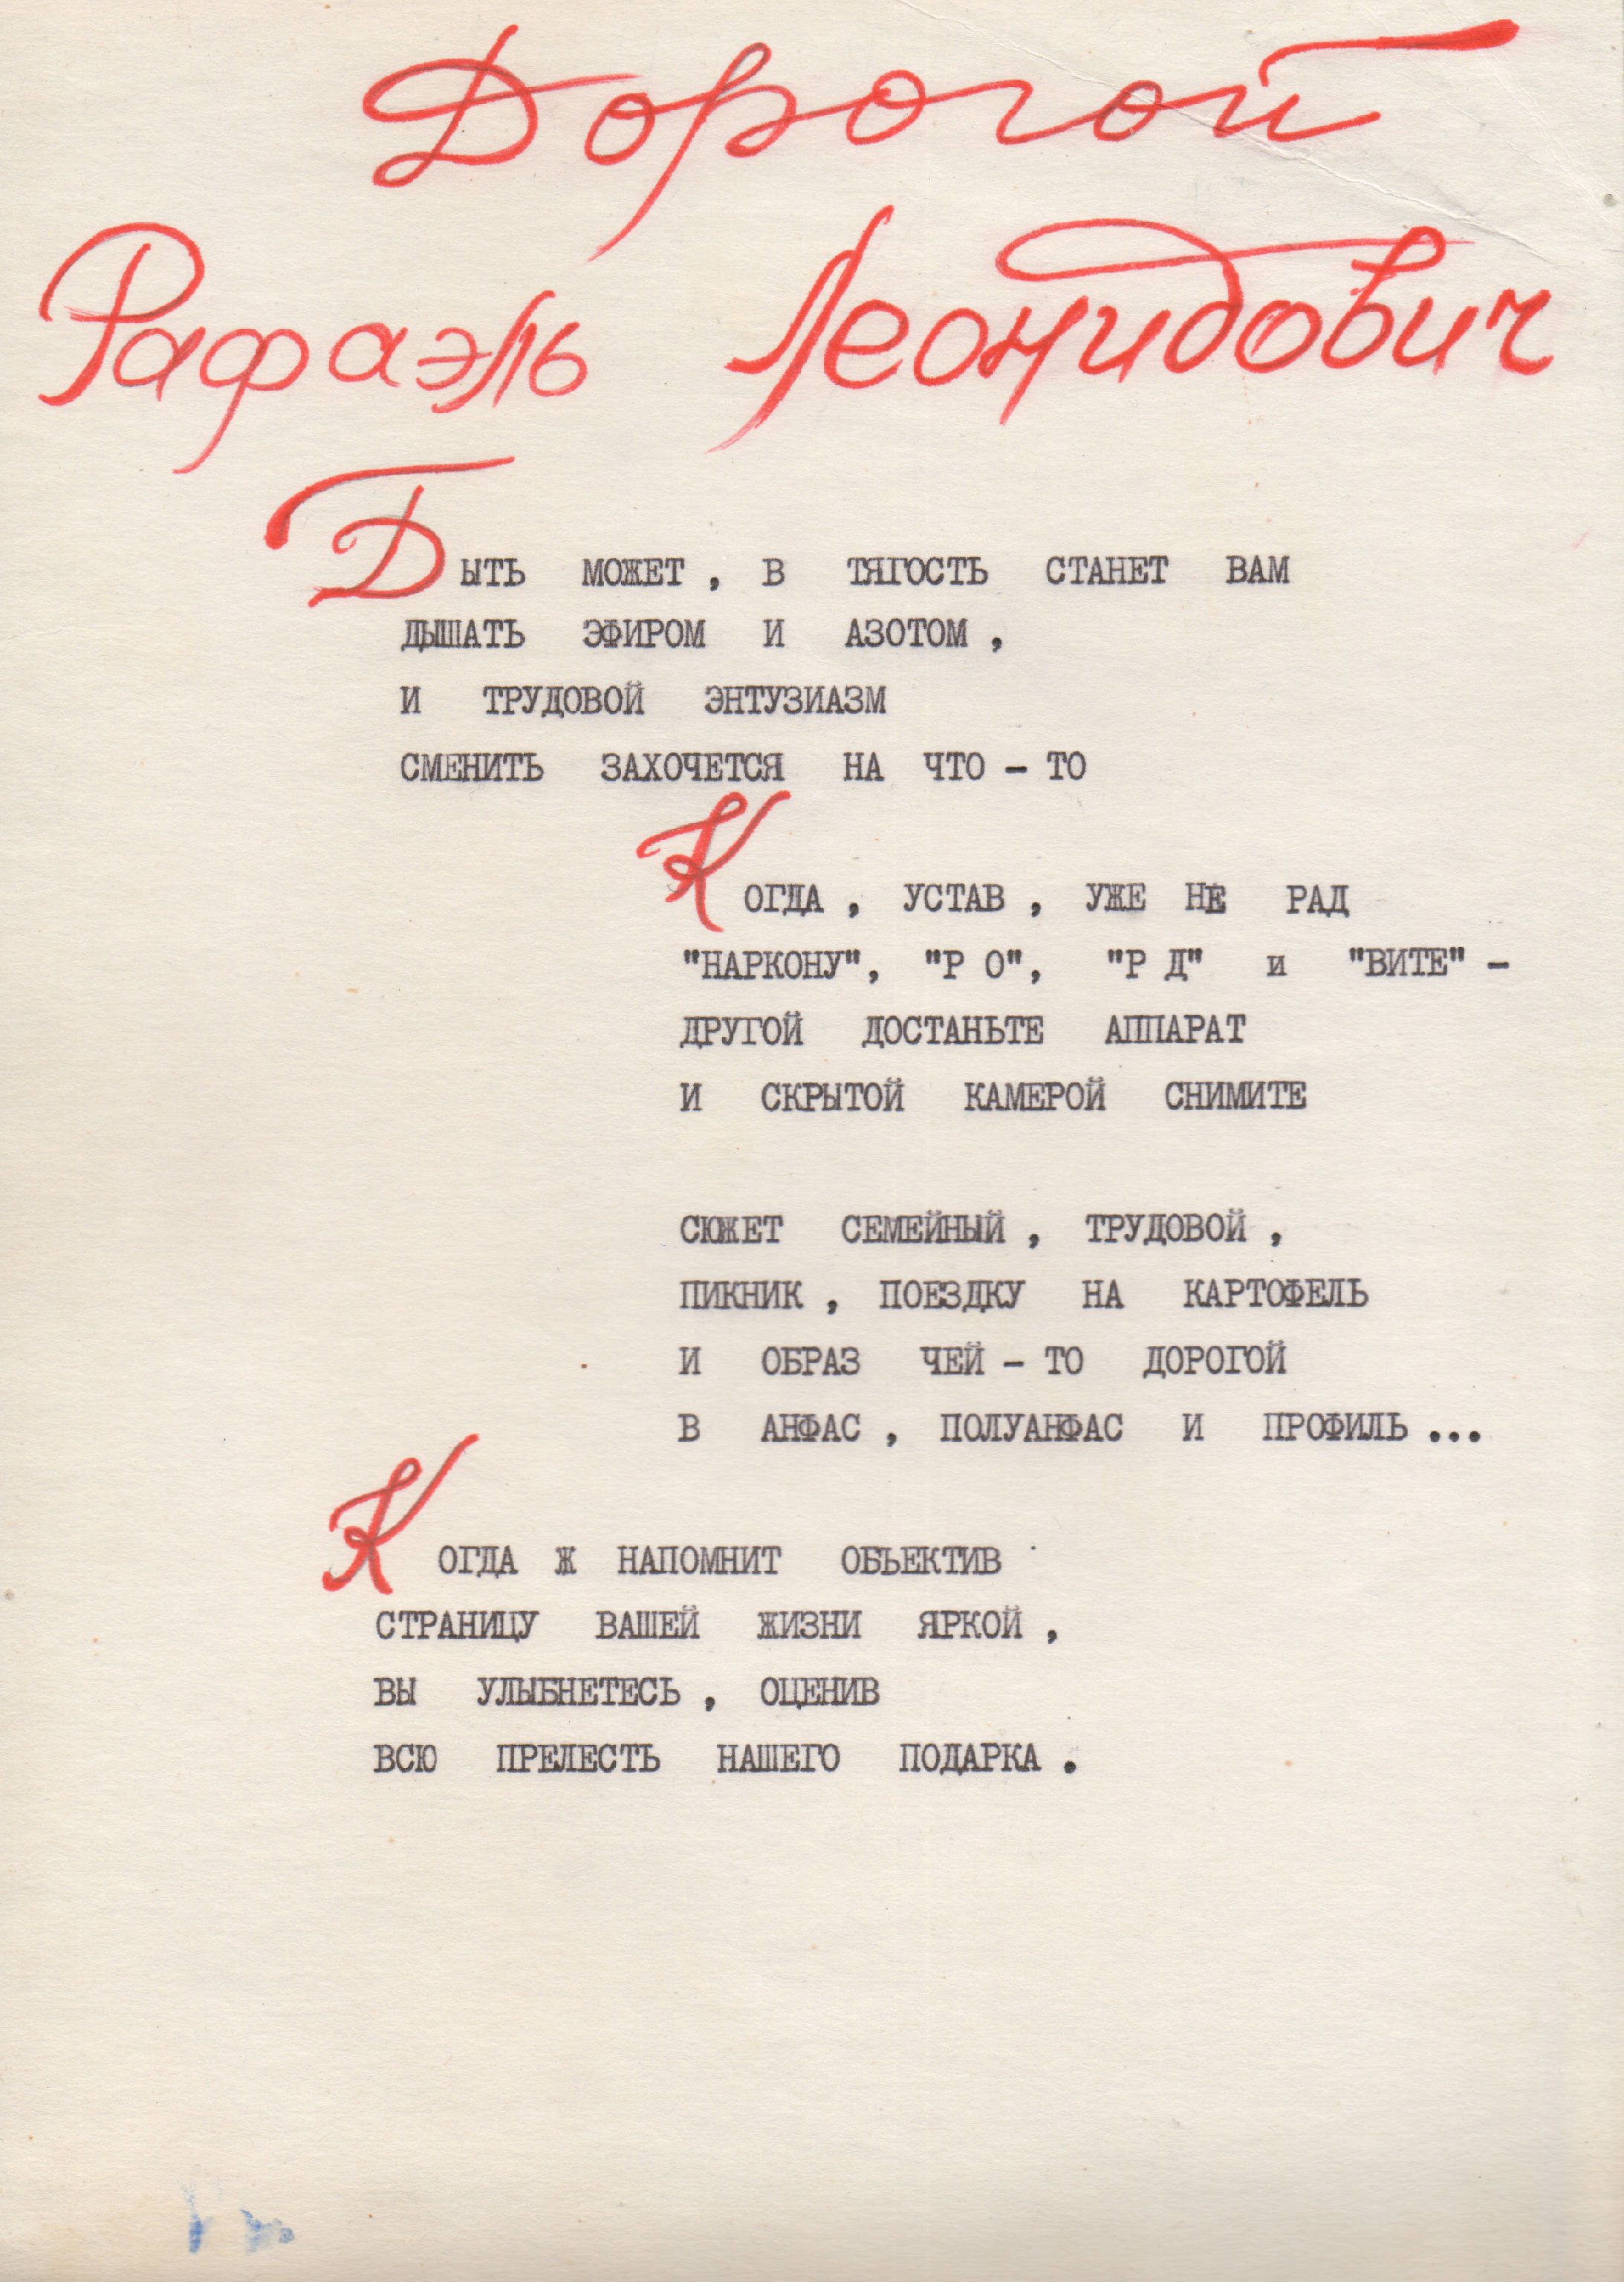 Дорогой
Рафаэль Леонидович
БЫТЬ МОЖЕТ, В ТЯГОСТЬ СТАНЕТ ВАМ
ДЫШАТЬ ЭФИРОМ И АЗОТОМ,
И ТРУДОВОЙ ЭНТУЗИАЗМ
СМЕНИТЬ ЗАХОЧЕТСЯ НА ЧТО-ТО
КОГДА, УСТАВ, УЖЕ НЕ РАД
"НАРКОНУ", "Р О", "Р Д" и "ВИТЕ" -
ДРУГОЙ ДОСТАНЬТЕ АППАРАТ
И СКРЫТОЙ КАМЕРОЙ СНИМИТЕ
СЮЖЕТ СЕМЕЙНЫЙ, ТРУДОВОЙ,
ПИКНИК, ПОЕЗДКУ НА КАРТОФЕЛЬ
И ОБРАЗ ЧЕЙ-ТО ДОРОГОЙ
В АНФАС, ПОЛУАНФАС И ПРОФИЛЬ...
КОГДА Ж НАПОМНИТ ОБЪЕКТИВ
СТРАНИЦУ ВАШЕЙ ЖИЗНИ ЯРКОЙ,
ВЫ УЛЫБНЕТЕСЬ, ОЦЕНИВ
ВСЮ ПРЕЛЕСТЬ НАШЕГО ПОДАРКА.